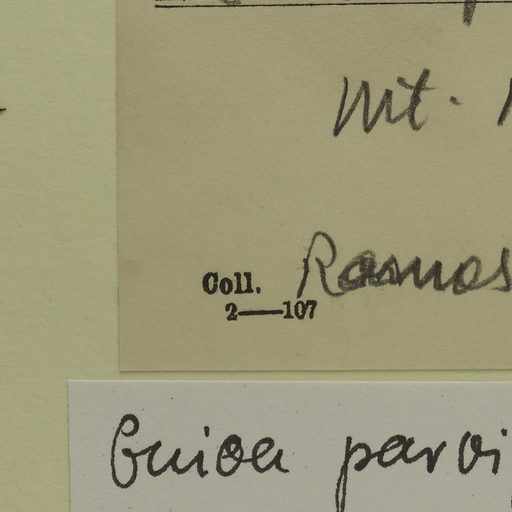 Mt.
Coll. Ramos
2—107
Guioa parvi